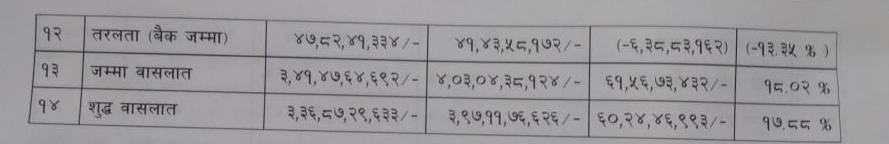 १२ तरलता (बैक जम्मा) ४७,८२,४१,३३४/- ४१,४३,५८,१७२/- (-६,३८,८३,१६२) (-१३.३५ % )
१३ जम्मा वासलात ३,४१,४७,६४,६९२/- ४,०३,०४,३८,१२४/- ६१,५६,७३,४३२/- १८.०२ %
१४ शुद्ध वासलात ३,३६,८७,२९,६३३/- ३,९७,११,७६,६२६/- ६०,२४,४६,९९३/- १७.८८ %